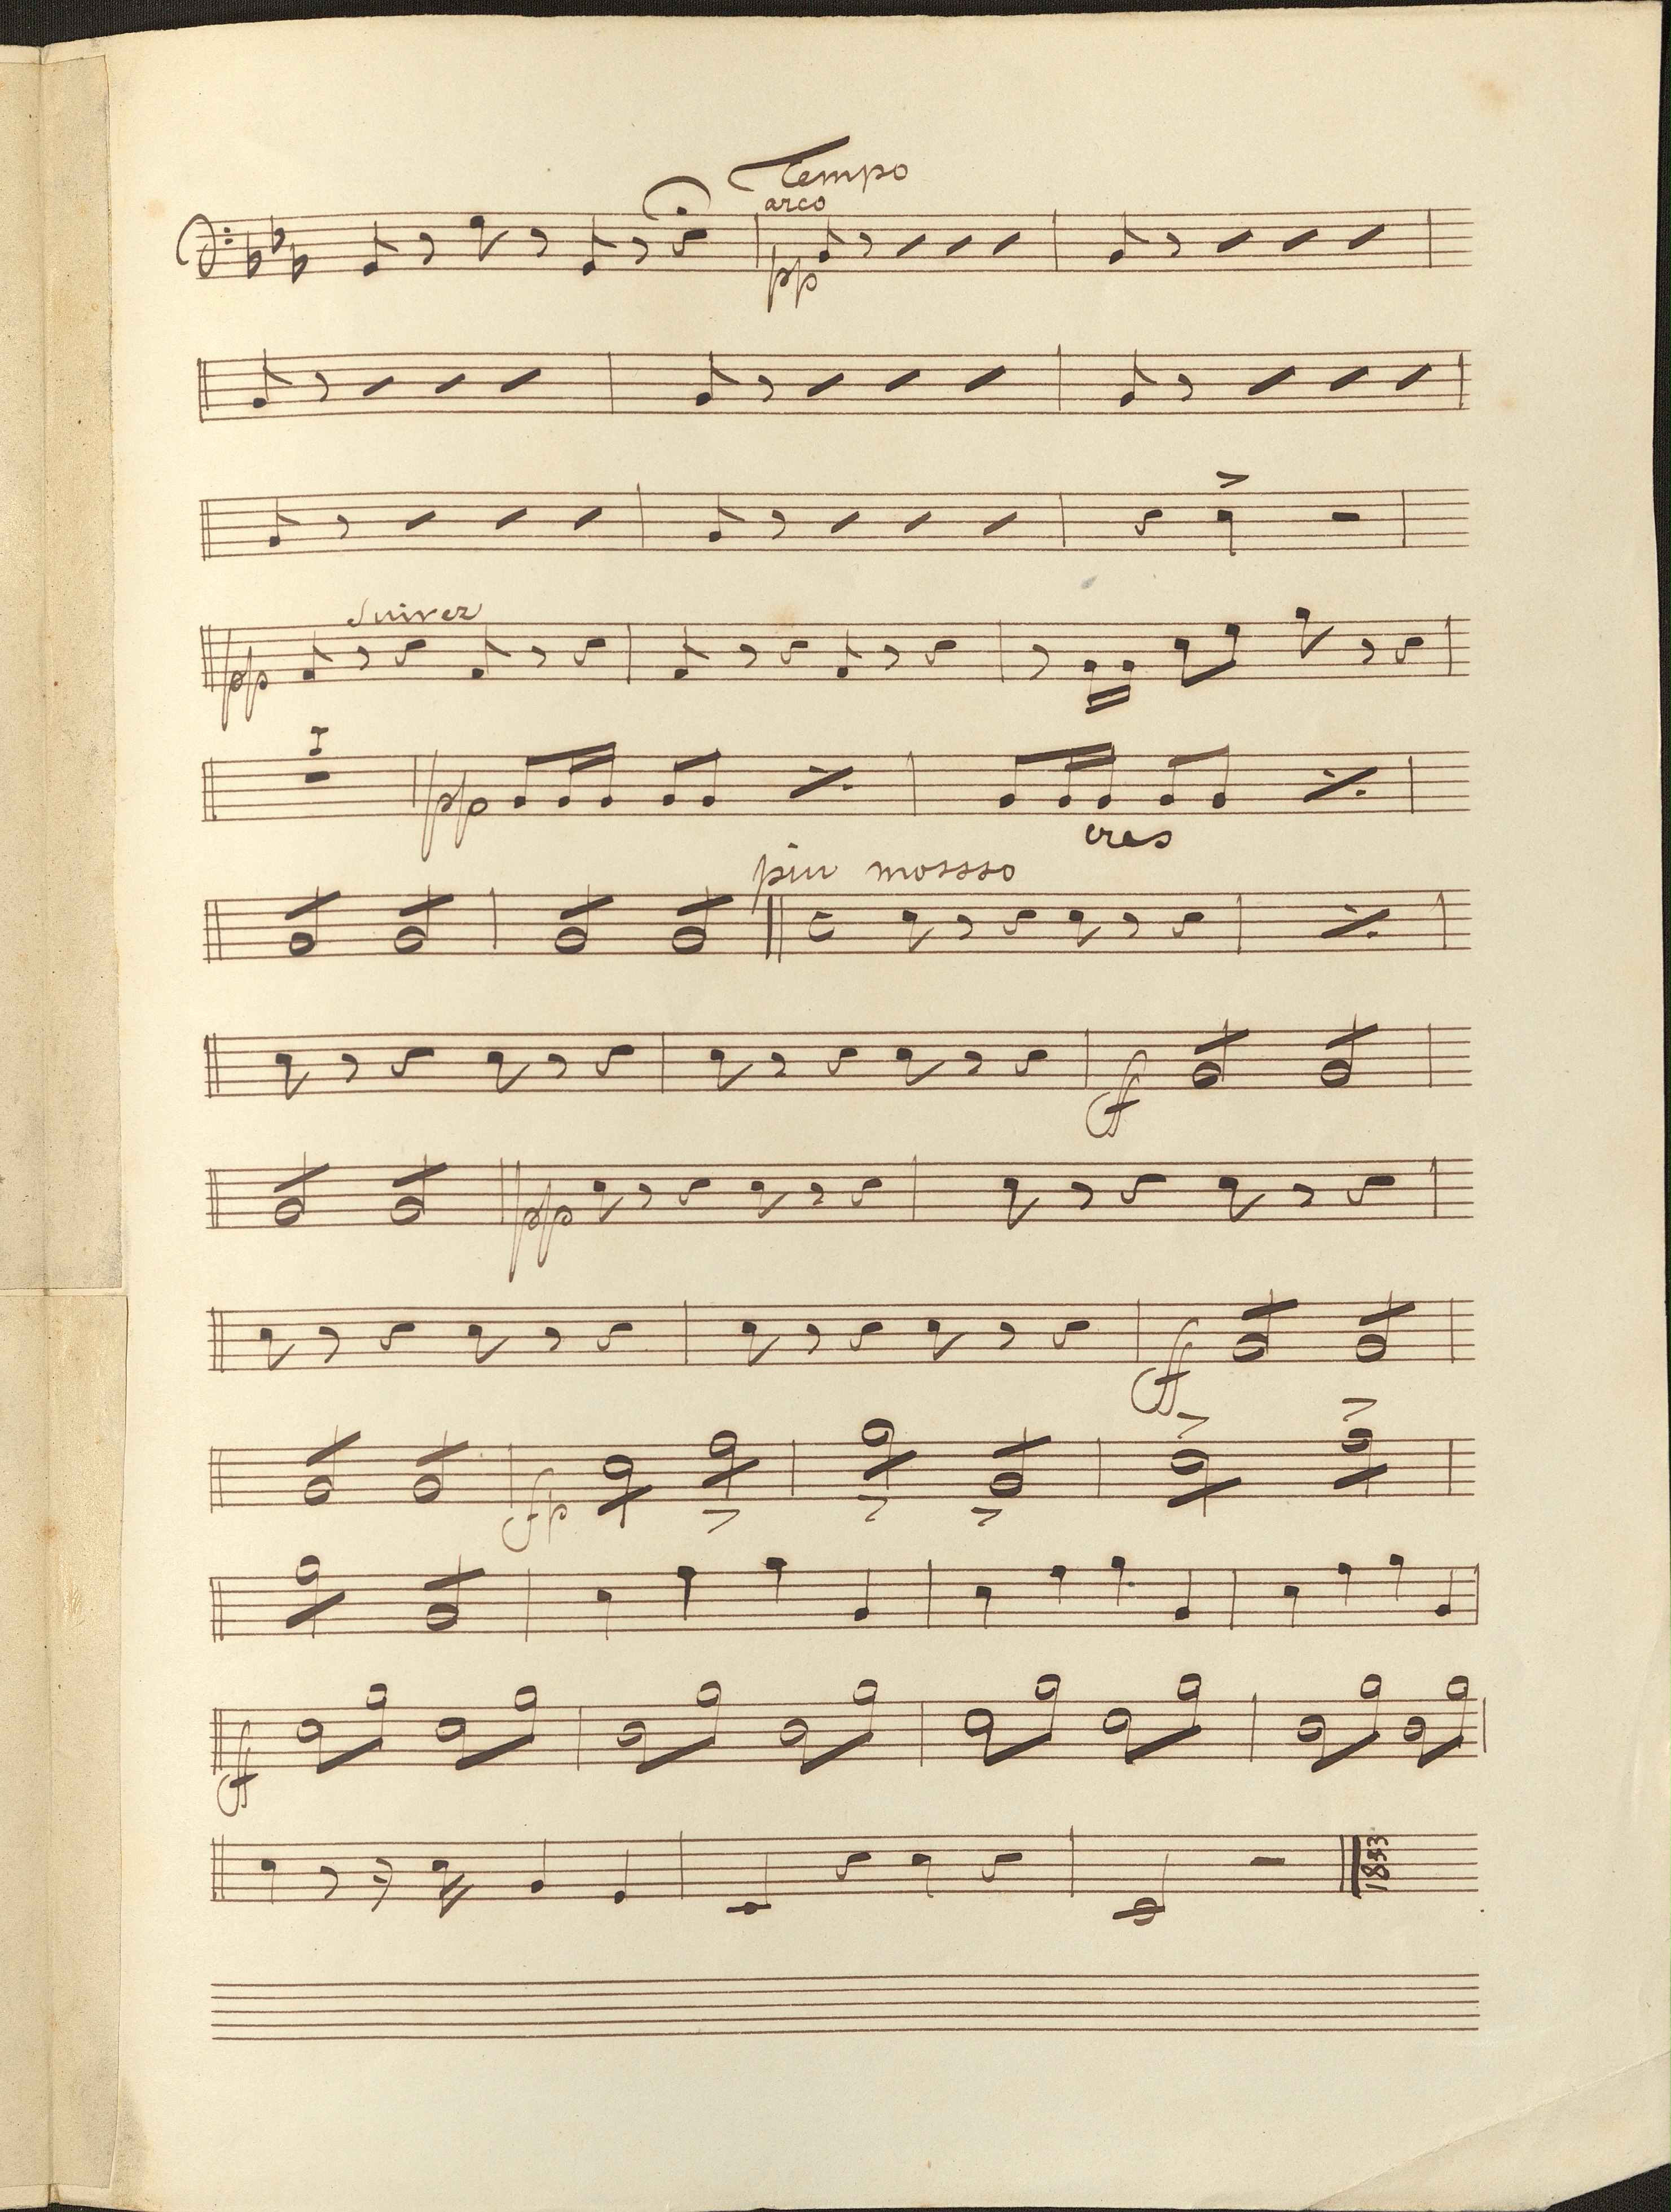 Tempo
arco
pp
suivez
pp
I
pp
cres
piu mossso
ff
pp
ff
fp
ff
1833